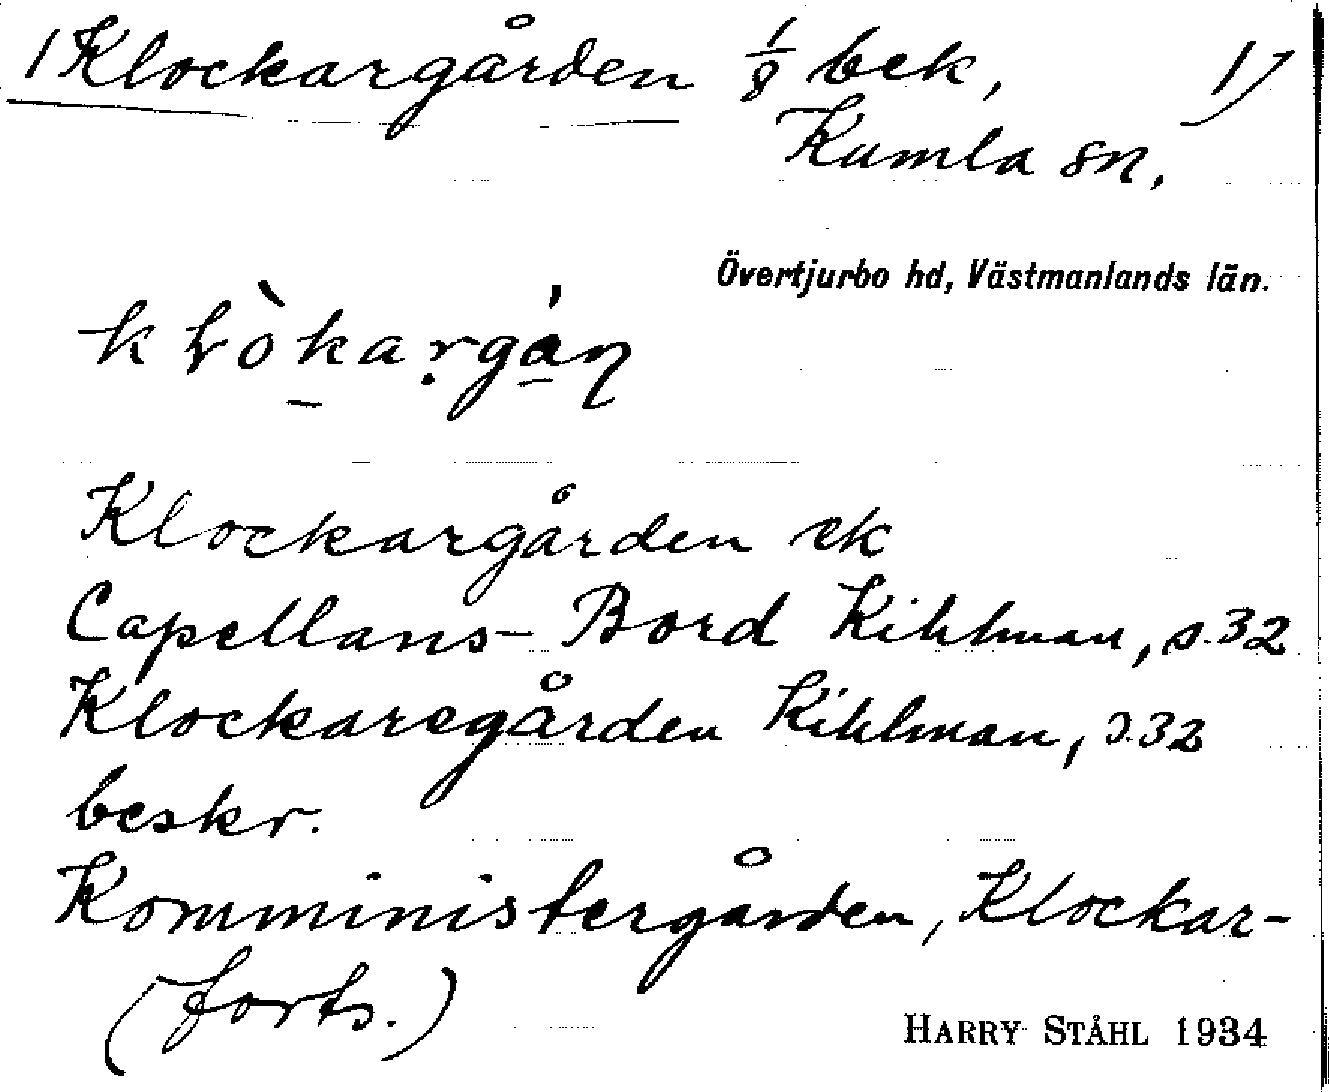 1 Klockargården 1/8 bek, 1)
Kumla sn.
Övertjurbo hd, Västmanlands län.
Klockargården ek
Capellans- Bord Kihlman, s. 32
Klockaregården Kihlman, s. 32
beskr.
Komministergården, Klockar-
(forts.)
HARRY STÅHL 1934